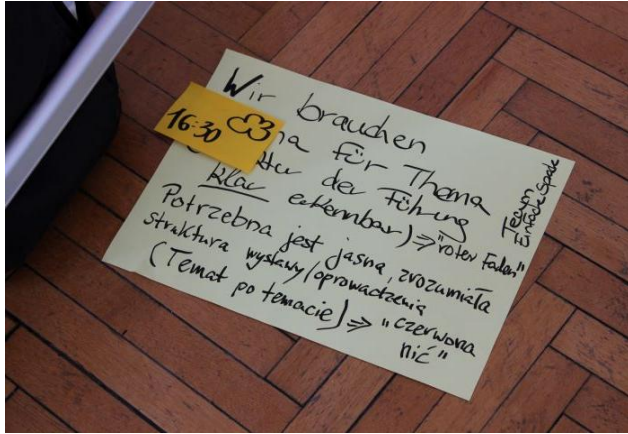 Wir brauchen
16:30
für Thema
der Führung
klar erkennbar) => "roter Faden"
Potrzebna jest jasna, zrozumiała
struktura wystawy/oprowadzenia
(Temat po temacie) => "czerwona
nić"
Team
Einfache Sprache